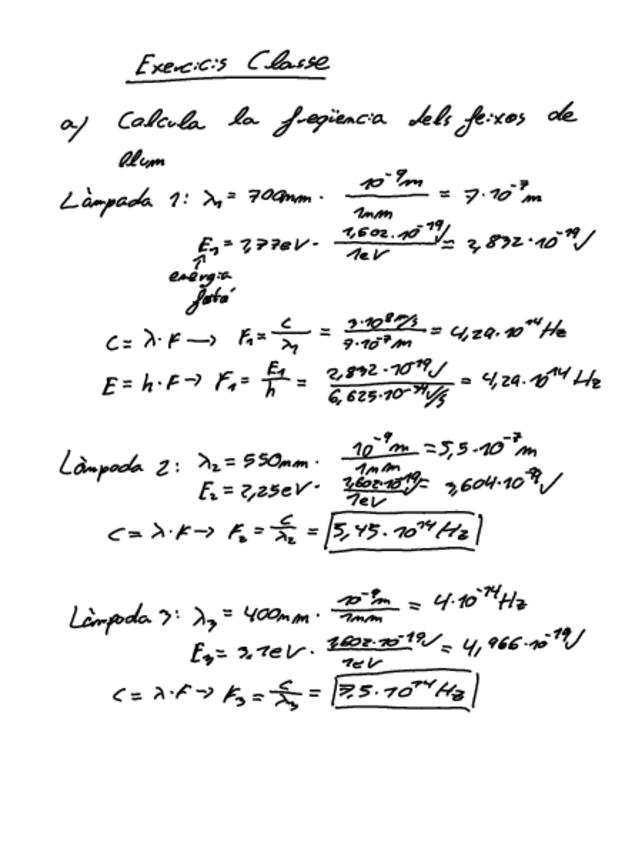 Exercicis Classe
a) Calcula la freqüencia dels feixos de
llum
Làmpada 1: λ₁ = 700nm · 10⁻⁹m / 1nm = 7·10⁻⁷m
E₁ = 1,77eV · 1,602·10⁻¹⁹J / 1eV = 2,832·10⁻¹⁹J
↑
energia
fotó
C = λ·F → F₁ = c/λ₁ = 3·10⁸m/s / 7·10⁻⁷m = 4,29·10¹⁴Hz
E = h·F → F₁ = E₁/h = 2,832·10¹⁹J / 6,625·10⁻³⁴J/s = 4,29·10¹⁴Hz
Làmpada 2: λ₂ = 550nm · 10⁻⁹m / 1nm = 5,5·10⁻⁷m
E₂ = 2,25eV · 1,602·10⁻¹⁹J / 1eV = 3,604·10⁻¹⁹J
C = λ·F → F₂ = c/λ₂ = 5,45·10¹⁴Hz
Làmpada 3: λ₃ = 400nm · 10⁻⁹m / 1nm = 4·10⁻¹⁴Hz
E₃ = 3.1eV · 1,602·10⁻¹⁹J / 1eV = 4,966·10⁻¹⁹J
C = λ·F → F₃ = c/λ₃ = 7,5·10¹⁴Hz